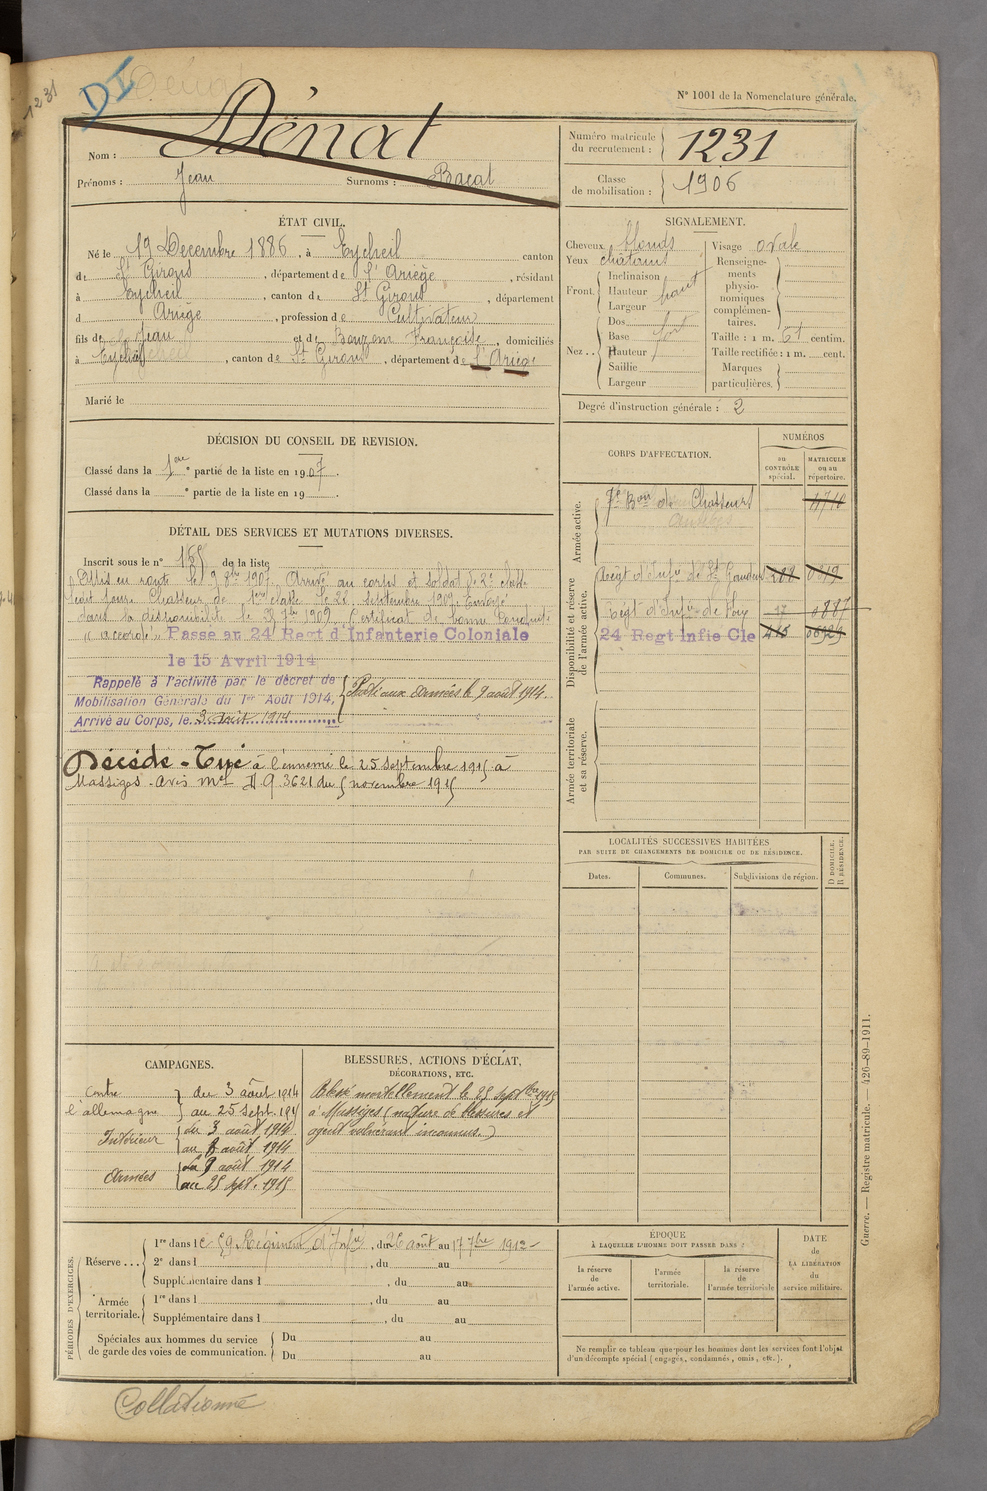 1231
DI
N° 1001 de la Nomenclature générale.
Nom : Dénat
Prénoms : Jean Surnoms : Bacat
Numéro matricule du recrutement : 1231
Classe de mobilisation : 1906
ÉTAT CIVIL.
Né le 19 Decembre 1886, à Eycheil canton
de St Girons, département de l'Ariège, résidant
à Eycheil, canton de St Girons, département
d Ariège, profession de Cultivateur
fils de Jean et de Françoise, domiciliés
à Eycheil, canton de St Girons, département de l'Ariège
Marié le
SIGNALEMENT.
Cheveux blonds
Yeux chatains
Front. Inclinaison
Hauteur haut
Largeur
Nez .. Dos
Base fort
Hauteur
Saillie
Largeur
Visage ovale
Renseignements physionomiques complémentaires.
Taille : 1 m. 61 centim.
Taille rectifiée : 1 m. cent.
Marques particulières.
Degré d'instruction générale : 2
DÉCISION DU CONSEIL DE REVISION.
Classé dans la 1ere partie de la liste en 1907.
Classé dans la ° partie de la liste en 19
DÉTAIL DES SERVICES ET MUTATIONS DIVERSES.
Inscrit sous le n° 155 de la liste
Mis en route le 9 8bre 1907. Arrivé au corps et soldat de 2e classe
ledit jour. Chasseur de 1ere classe le 22 septembre 1909. Envoyé
dans la disponibilité le 7bre 1909. Certificat de bonne conduite
"accordé" Passé au 24 Regt d'Infanterie Coloniale
le 15 Avril 1914
Rappelé à l'activité par le décret de
Mobilisation Générale du 1er Août 1914,
Arrivé au Corps, le 3 Août 1914
Parti aux Armées le 9 août 1914.
Décédé - Tué à l'ennemi le 25 septembre 1915 à
Massiges - avis mel 3621 du 5 novembre 1915
CORPS D'AFFECTATION.
NUMÉROS
au CONTRÔLE spécial.
MATRICULE ou au répertoire.
Armée active.
7e Bon de Chasseurs 4710
Disponibilité et réserve de l'armée active.
Regt d'Infie de St Gaudens
Regt d'Infie de Foix 0887
24 Regt Infie Cle
Armée territoriale et sa réserve.
LOCALITÉS SUCCESSIVES HABITÉES
PAR SUITE DE CHANGEMENTS DE DOMICILE OU DE RÉSIDENCE.
Dates. Communes. Subdivisions de région.
D DOMICILE.
R RÉSIDENCE.
CAMPAGNES.
Contre l'allemagne du 3 août 1914
au 25 sept. 1915
Intérieur du 3 août 1914
au 8 août 1914
Armées du 9 août 1914
au 25 sept. 1915
BLESSURES, ACTIONS D'ÉCLAT,
DÉCORATIONS, ETC.
Blessé mortellement le 25 septbre 1915
à Massiges (nature de blessures et
agent vulnérant inconnus.)
PÉRIODES D'EXERCICES.
Réserve ... 1re dans le 59 Régiment d'Infie, du 26 août au 17 7bre 1912
2e dans l , du au
Supplémentaire dans l , du au
Armée territoriale. 1re dans l , du au
Supplémentaire dans l , du au
Spéciales aux hommes du service de garde des voies de communication. Du au
Du au
ÉPOQUE
À LAQUELLE L'HOMME DOIT PASSER DANS :
la réserve de l'armée active.
l'armée territoriale.
la réserve de l'armée territoriale
DATE de LA LIBÉRATION du service militaire.
Ne remplir ce tableau que pour les hommes dont les services font l'objet
d'un décompte spécial (engagés, condamnés, omis, etc.).
Guerre. — Registre matricule. — 426-89-1911.
Collationné